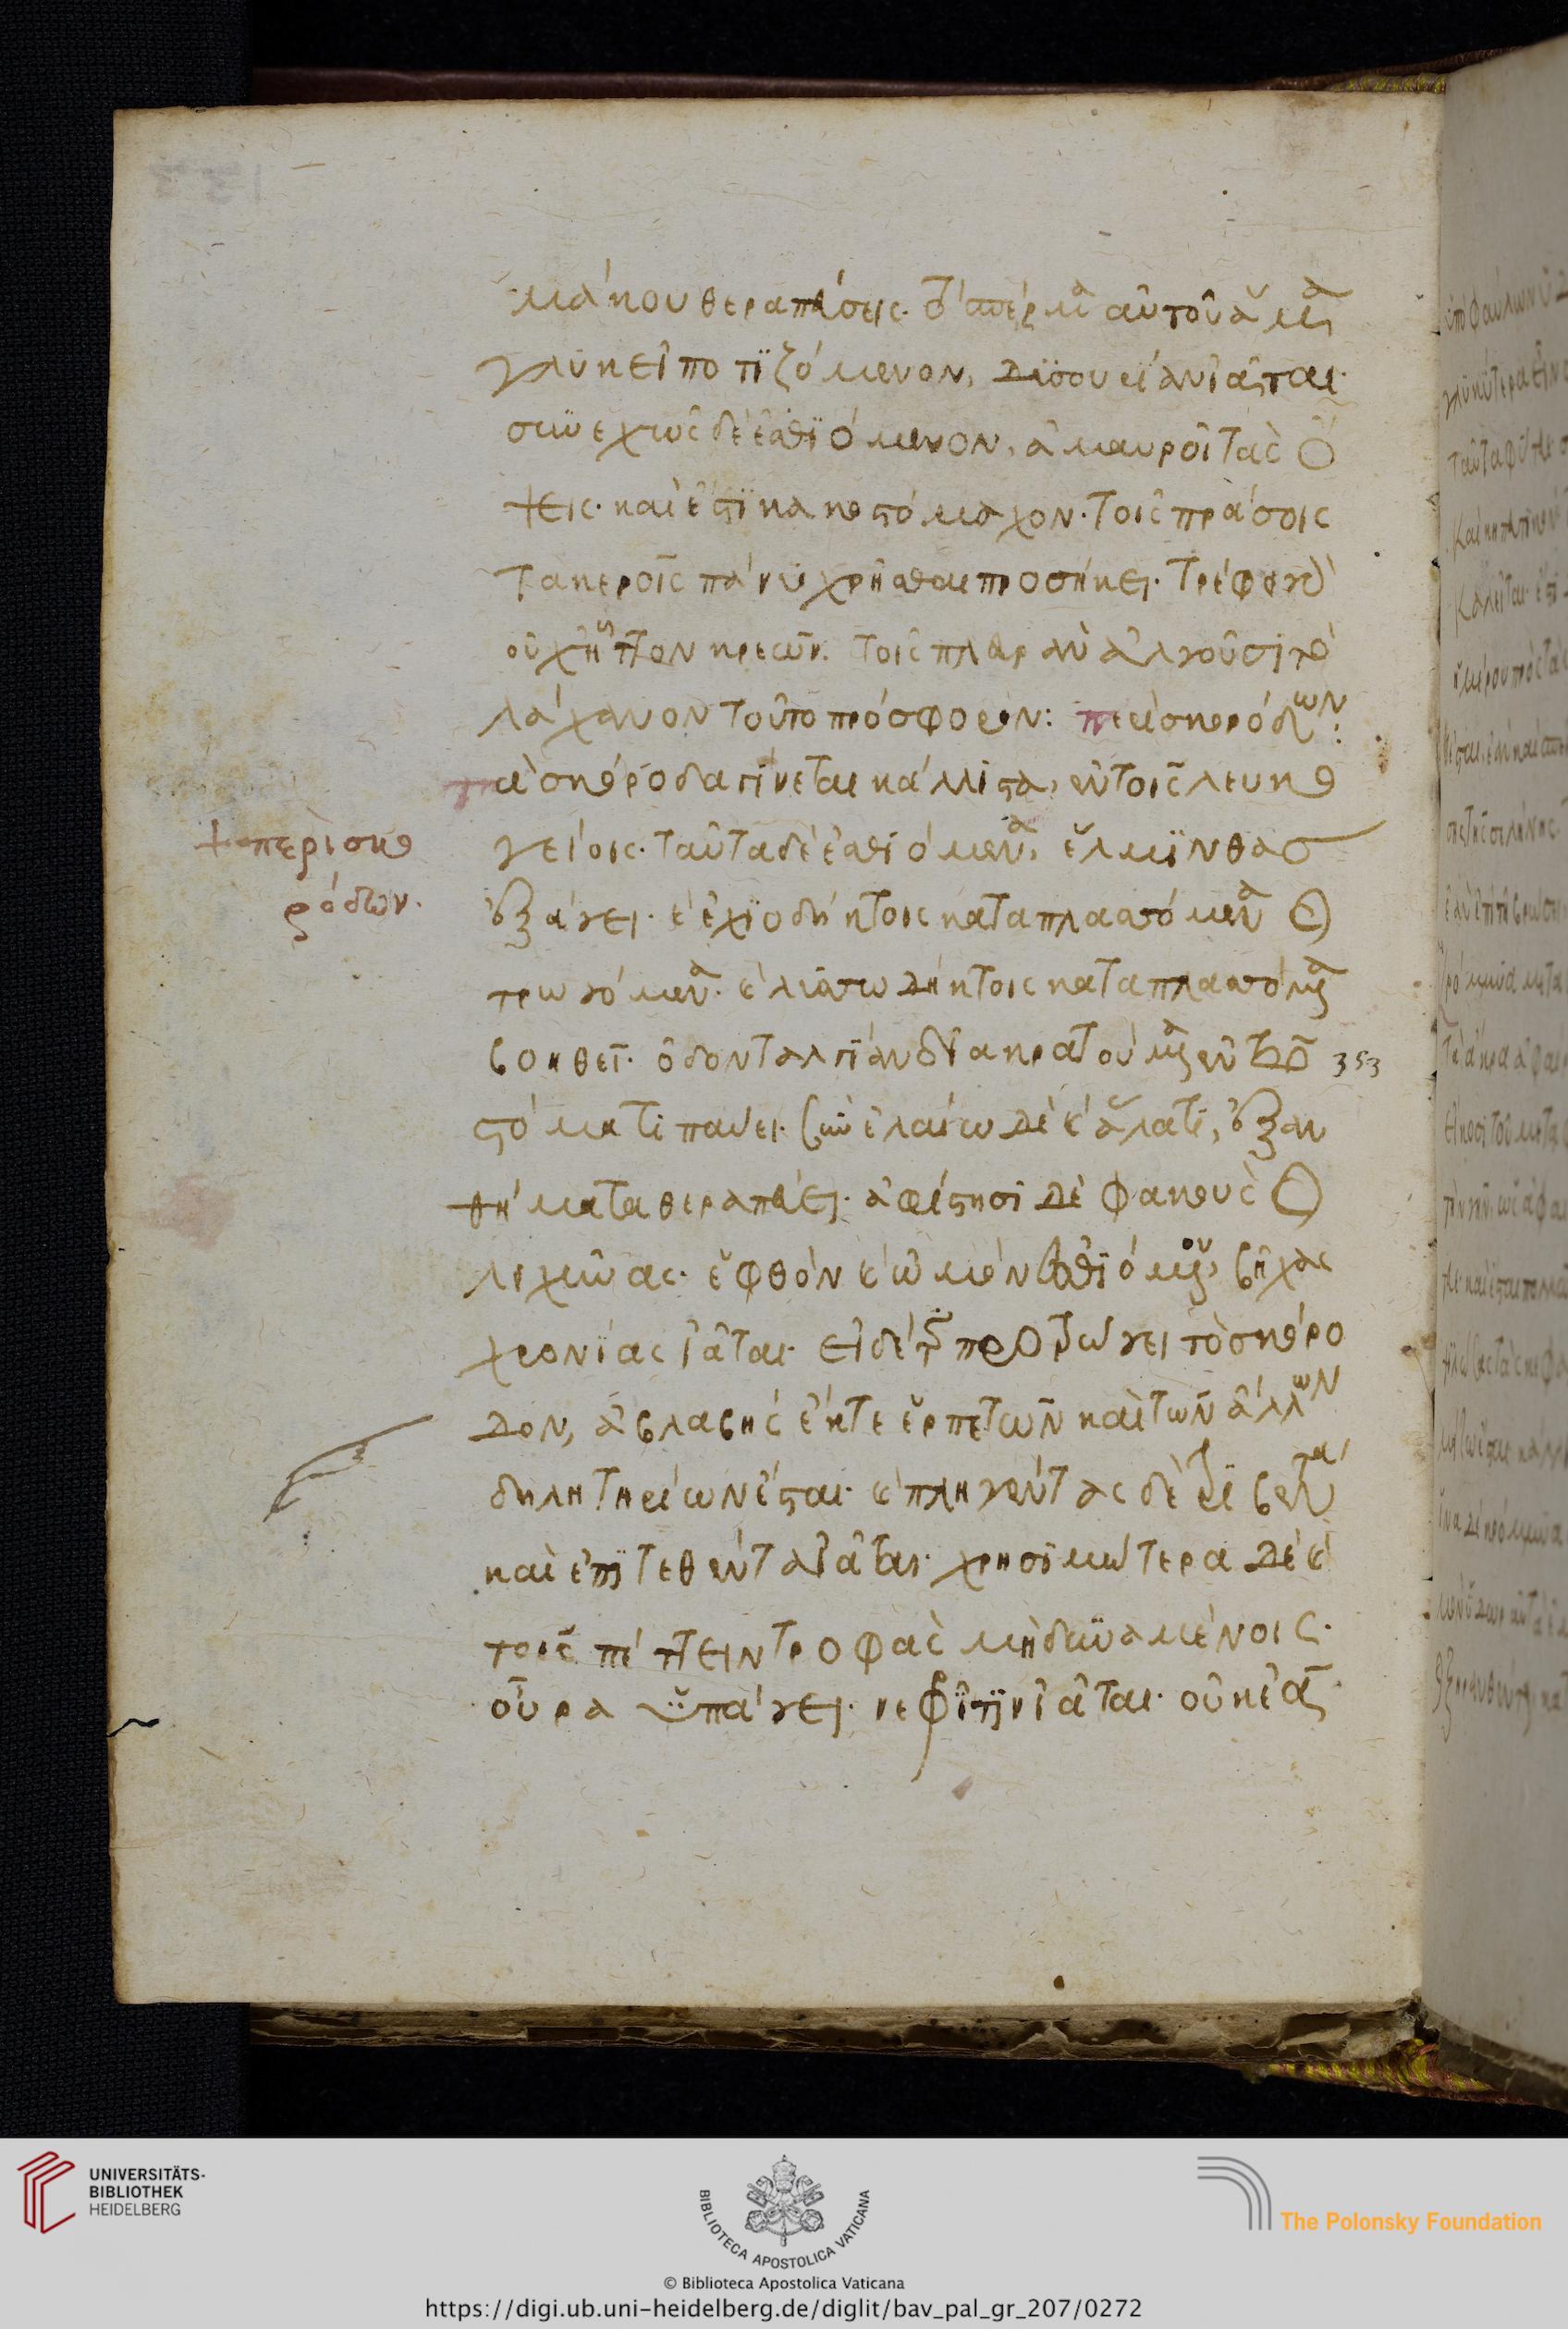 μάκου θεραπεύσεις· τὸ σπέρμα αὐτοῦ ἅμα
γλυκεῖ ποτιζόμενον, δυσουρίαν ἰᾶται·
συνεχῶς δὲ ἐσθιόμενον, ἀμαυροῖ τὰς ὄ
ψεις· καὶ ἐστὶ κακοστόμαχον· τοῖς πράσοις
τακεροῖς πάνυ χρῆσθαι προσήκει· τρέφει γὰρ
οὐχ ἧττον κρεῶν. τοῖς πλευρὰν ἀλγοῦσι τὸ
λάχανον τοῦτο πρόσφορον: περὶ σκορόδων:
τὰ σκόροδα γίνεται κάλλιστα, ἐν τοῖς λευκο
+ περὶ σκο
ρόδων.
γείοις· ταῦτα δὲ ἐσθιόμενα, ἕλμινθας
ἐξάγει· καὶ ἐχιοδήκτοις καταπλασσόμενα ἢ
τρωγόμενα· καὶ λυσσωδήκτοις καταπλασσόμενα
βοηθεῖ· ὀδονταλγίαν διακρατούμενα ἐν τῷ 353
στόματι παύει· σὺν ἐλαίω δὲ καὶ ἅλατι, ἐξαν
θήματα θεραπεύει· ἀφίστησι δὲ φακοὺς καὶ
λιχῆνας· ἑφθὸν καὶ ὠμὸν ἐσθιόμενον, βῆχας
χρονίας ἰᾶται· εἰ δέ τις προτρώγει τὸ σκόρο
δον, ἀβλαβὴς ἔκ τε ἑρπετῶν καὶ τῶν ἄλλων
δηλητηρίων ἔσται· καὶ πληγέντας δὲ τριβέντα
καὶ ἐπιτεθέντα ἰᾶται· χρησιμώτερα δὲ καὶ
τοῖς πέττειν τροφὰς μὴ δυναμένοις·
οὖρα ὑπάγει· νεφρῖτιν ἰᾶται· οὐκ ἐᾷ
UNIVERSITÄTS-
BIBLIOTHEK
HEIDELBERG
BIBLIOTECA APOSTOLICA VATICANA
The Polonsky Foundation
© Biblioteca Apostolica Vaticana
https://digi.ub.uni-heidelberg.de/diglit/bav_pal_gr_207/0272